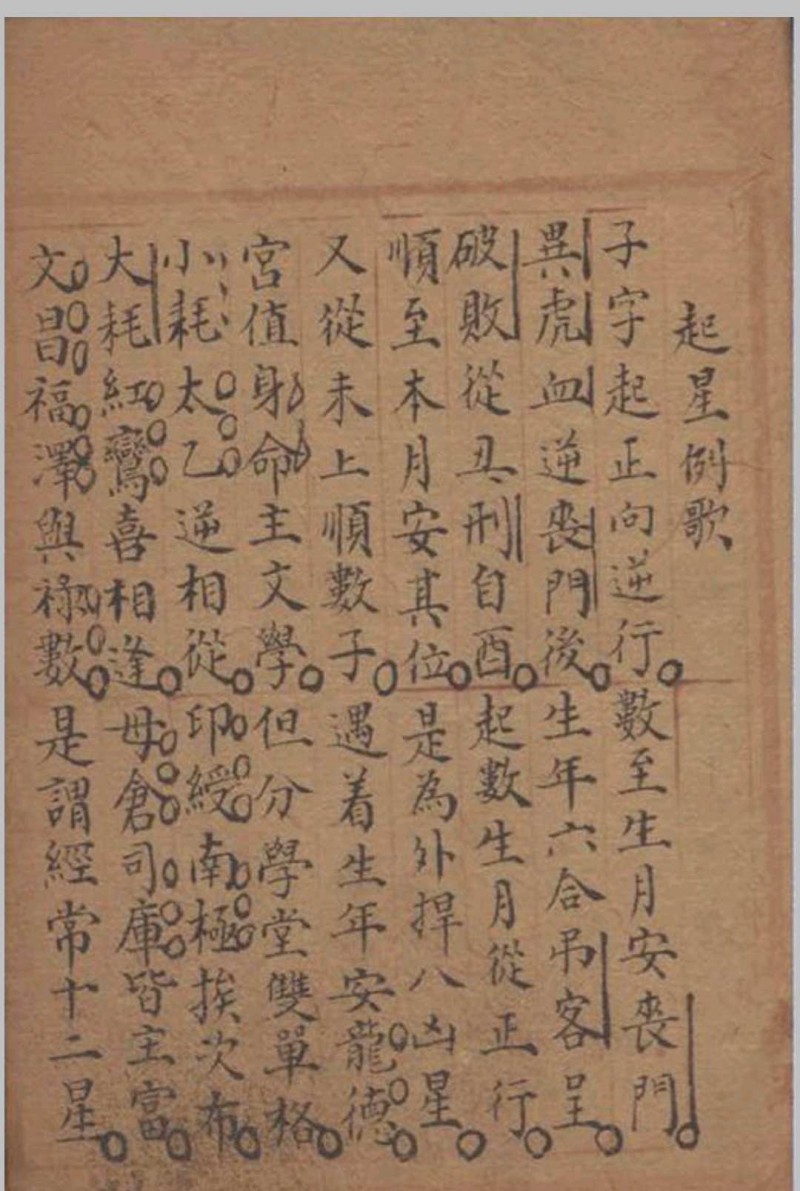 起星例歌
子字起正向逆行數至生月安喪門
異虎血逆喪門後生年六合吊客呈
破敗從丑刑自酉起數生月從正行
順至本月安其位是為外捍八凶星
又從未上順數子遇着生年安龍德
宮值身命主文學但分學堂雙單格
小耗太乙逆相從印綬南極挨次布
大耗紅鸞喜相逢母倉司庫皆主富
文昌福澤與祿數是謂經常十二星